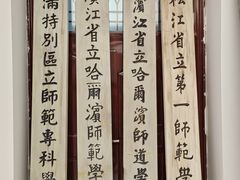 松江省立第一師範學
濱江省立哈爾濱師道學
濱江省立哈爾濱師範學
滿特別區立師範專科學